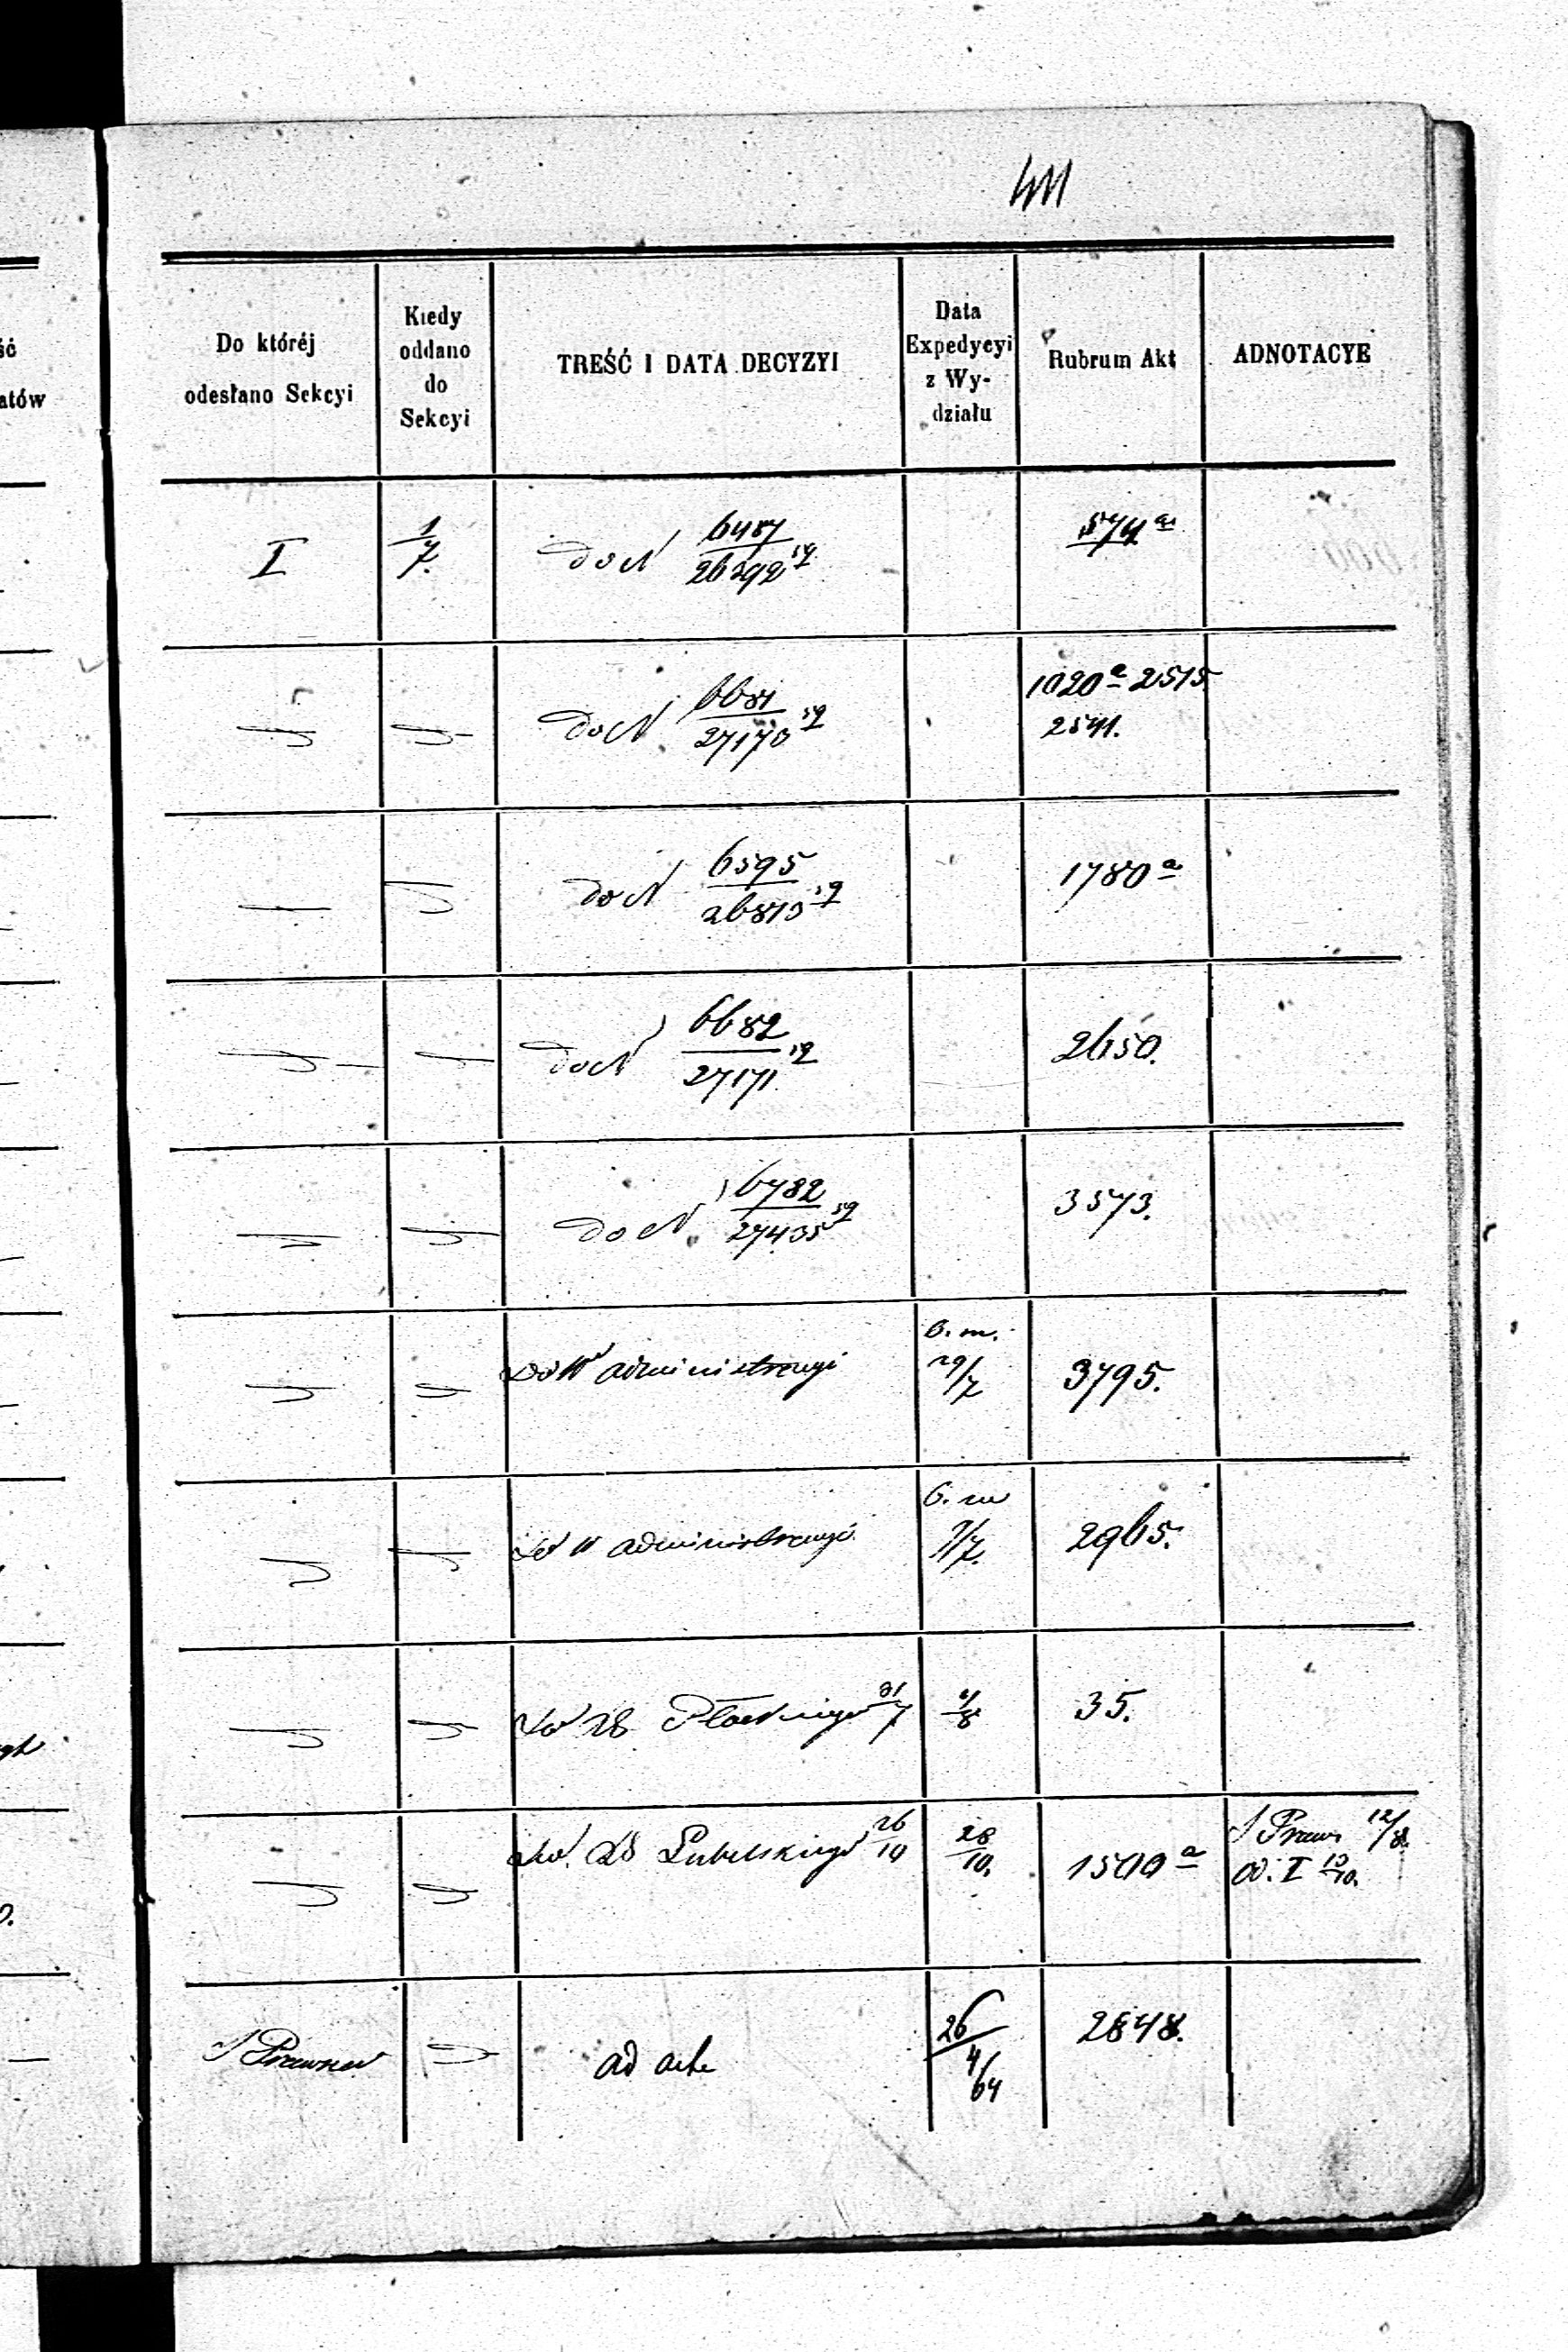 411
Do któréj odesłano Sekcyi | Kiedy oddano do Sekcyi | TREŚĆ I DATA DECYZYI | Data Expedycyi z Wydziału | Rubrum Akt | ADNOTACYE
I | 1/7. | do N 6487/26292 | | 574 a
do N 6681/27170 | | 1020 a 2515.
2541.
do N 6595/26813 | | 1780 a
do N 6682/27171 | | 2650.
do N 6782/27435 | | 3573.
Do W administracyi | b. m. 29/7 | 3795.
Do W administracyi | b. m 7/7. | 2965.
Do Płockiego 31/7 | 8 | 35.
Do Lubelskiego 26/10 | 28/10. | 1500 a | S Praw 12/8.
od. I 13/10.
S Prawna | ad acta | 26/4/64 | 2848.